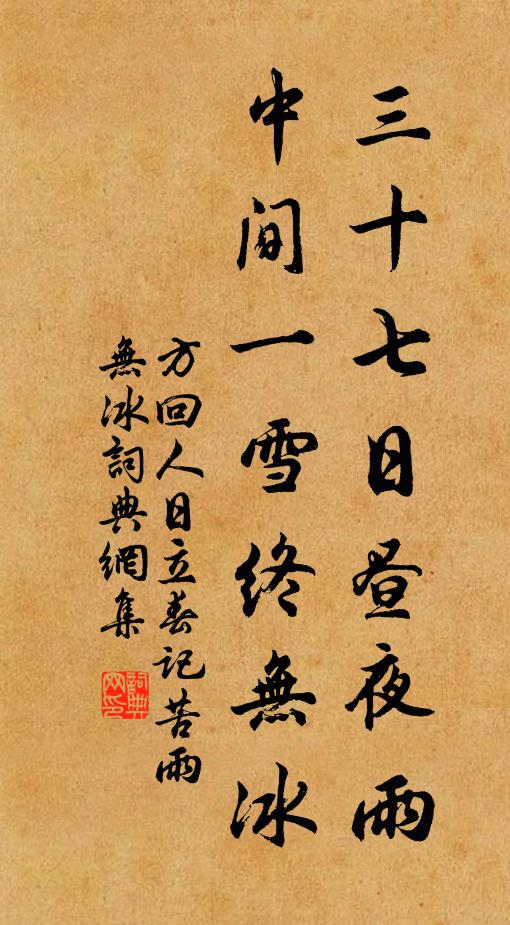 三十七日昼夜雨
中间一雪终無冰
方回人日立春记苦雨
無冰詞典網集
詞典网印